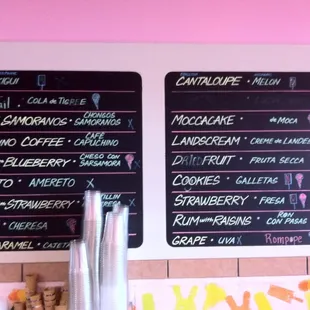 IGUI
ail · COLA de TIGRE
SAMORANOS · CHONGOS SAMORANOS X
NO COFFEE · CAFE CAPUCHINO
BLUEBERRY · CHESO CON SARSAMORA
TO · AMERETO X
STRAWBERRY
CHERESA
ARAMEL
CANTALOUPE · MELON
MOCCACAKE · de MOCA
LANDSCREAM · CREME de LANDE
DRIED FRUIT · FRUTA SECCA
COOKIES · GALLETAS
STRAWBERRY · FRESA
RUM with RAISINS · RON CON PASAS
GRAPE · UVA X Rompope